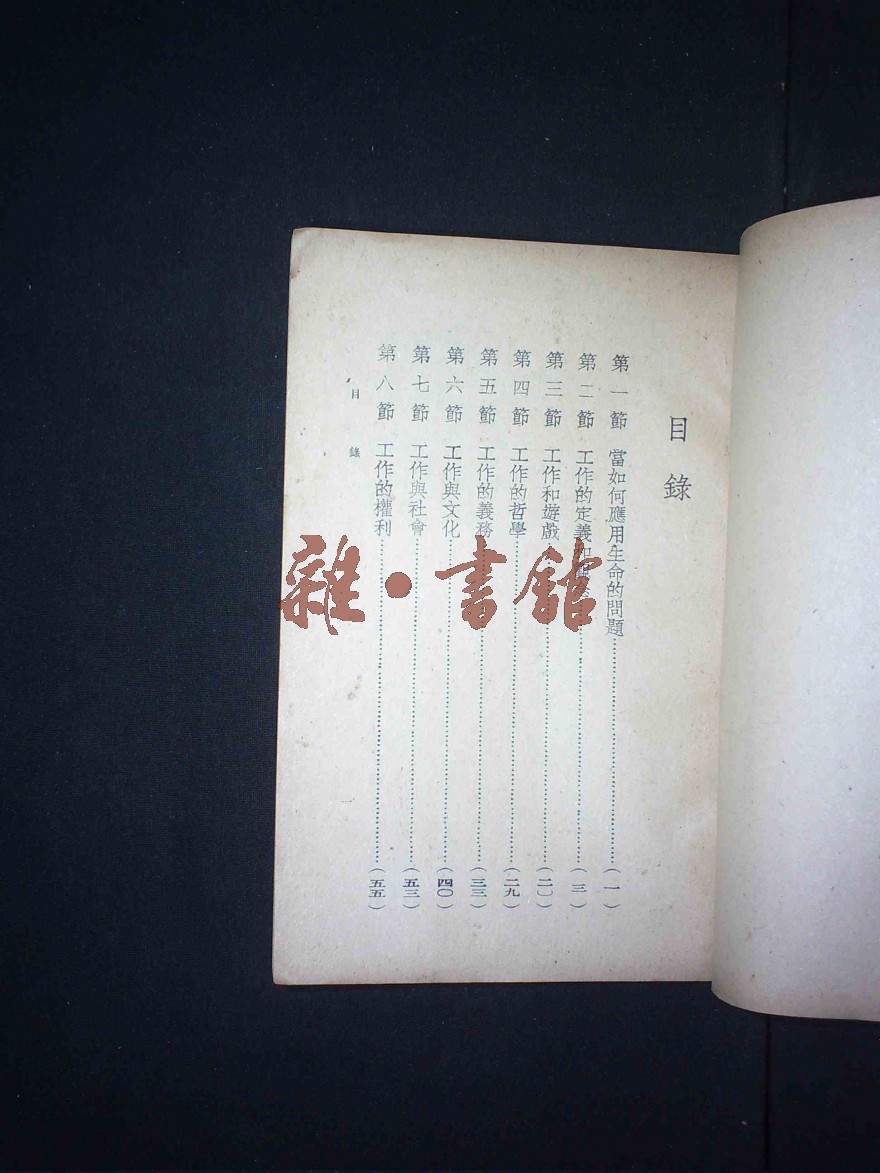 目錄
第一節 當如何應用生命的問題……(一)
第二節 工作的定義和……(三)
第三節 工作和遊戲……(二〇)
第四節 工作的哲學……(二九)
第五節 工作的義務……(三三)
第六節 工作與文化……(四〇)
第七節 工作與社會……(五三)
第八節 工作的權利……(五五)
目錄
一
雜·書館